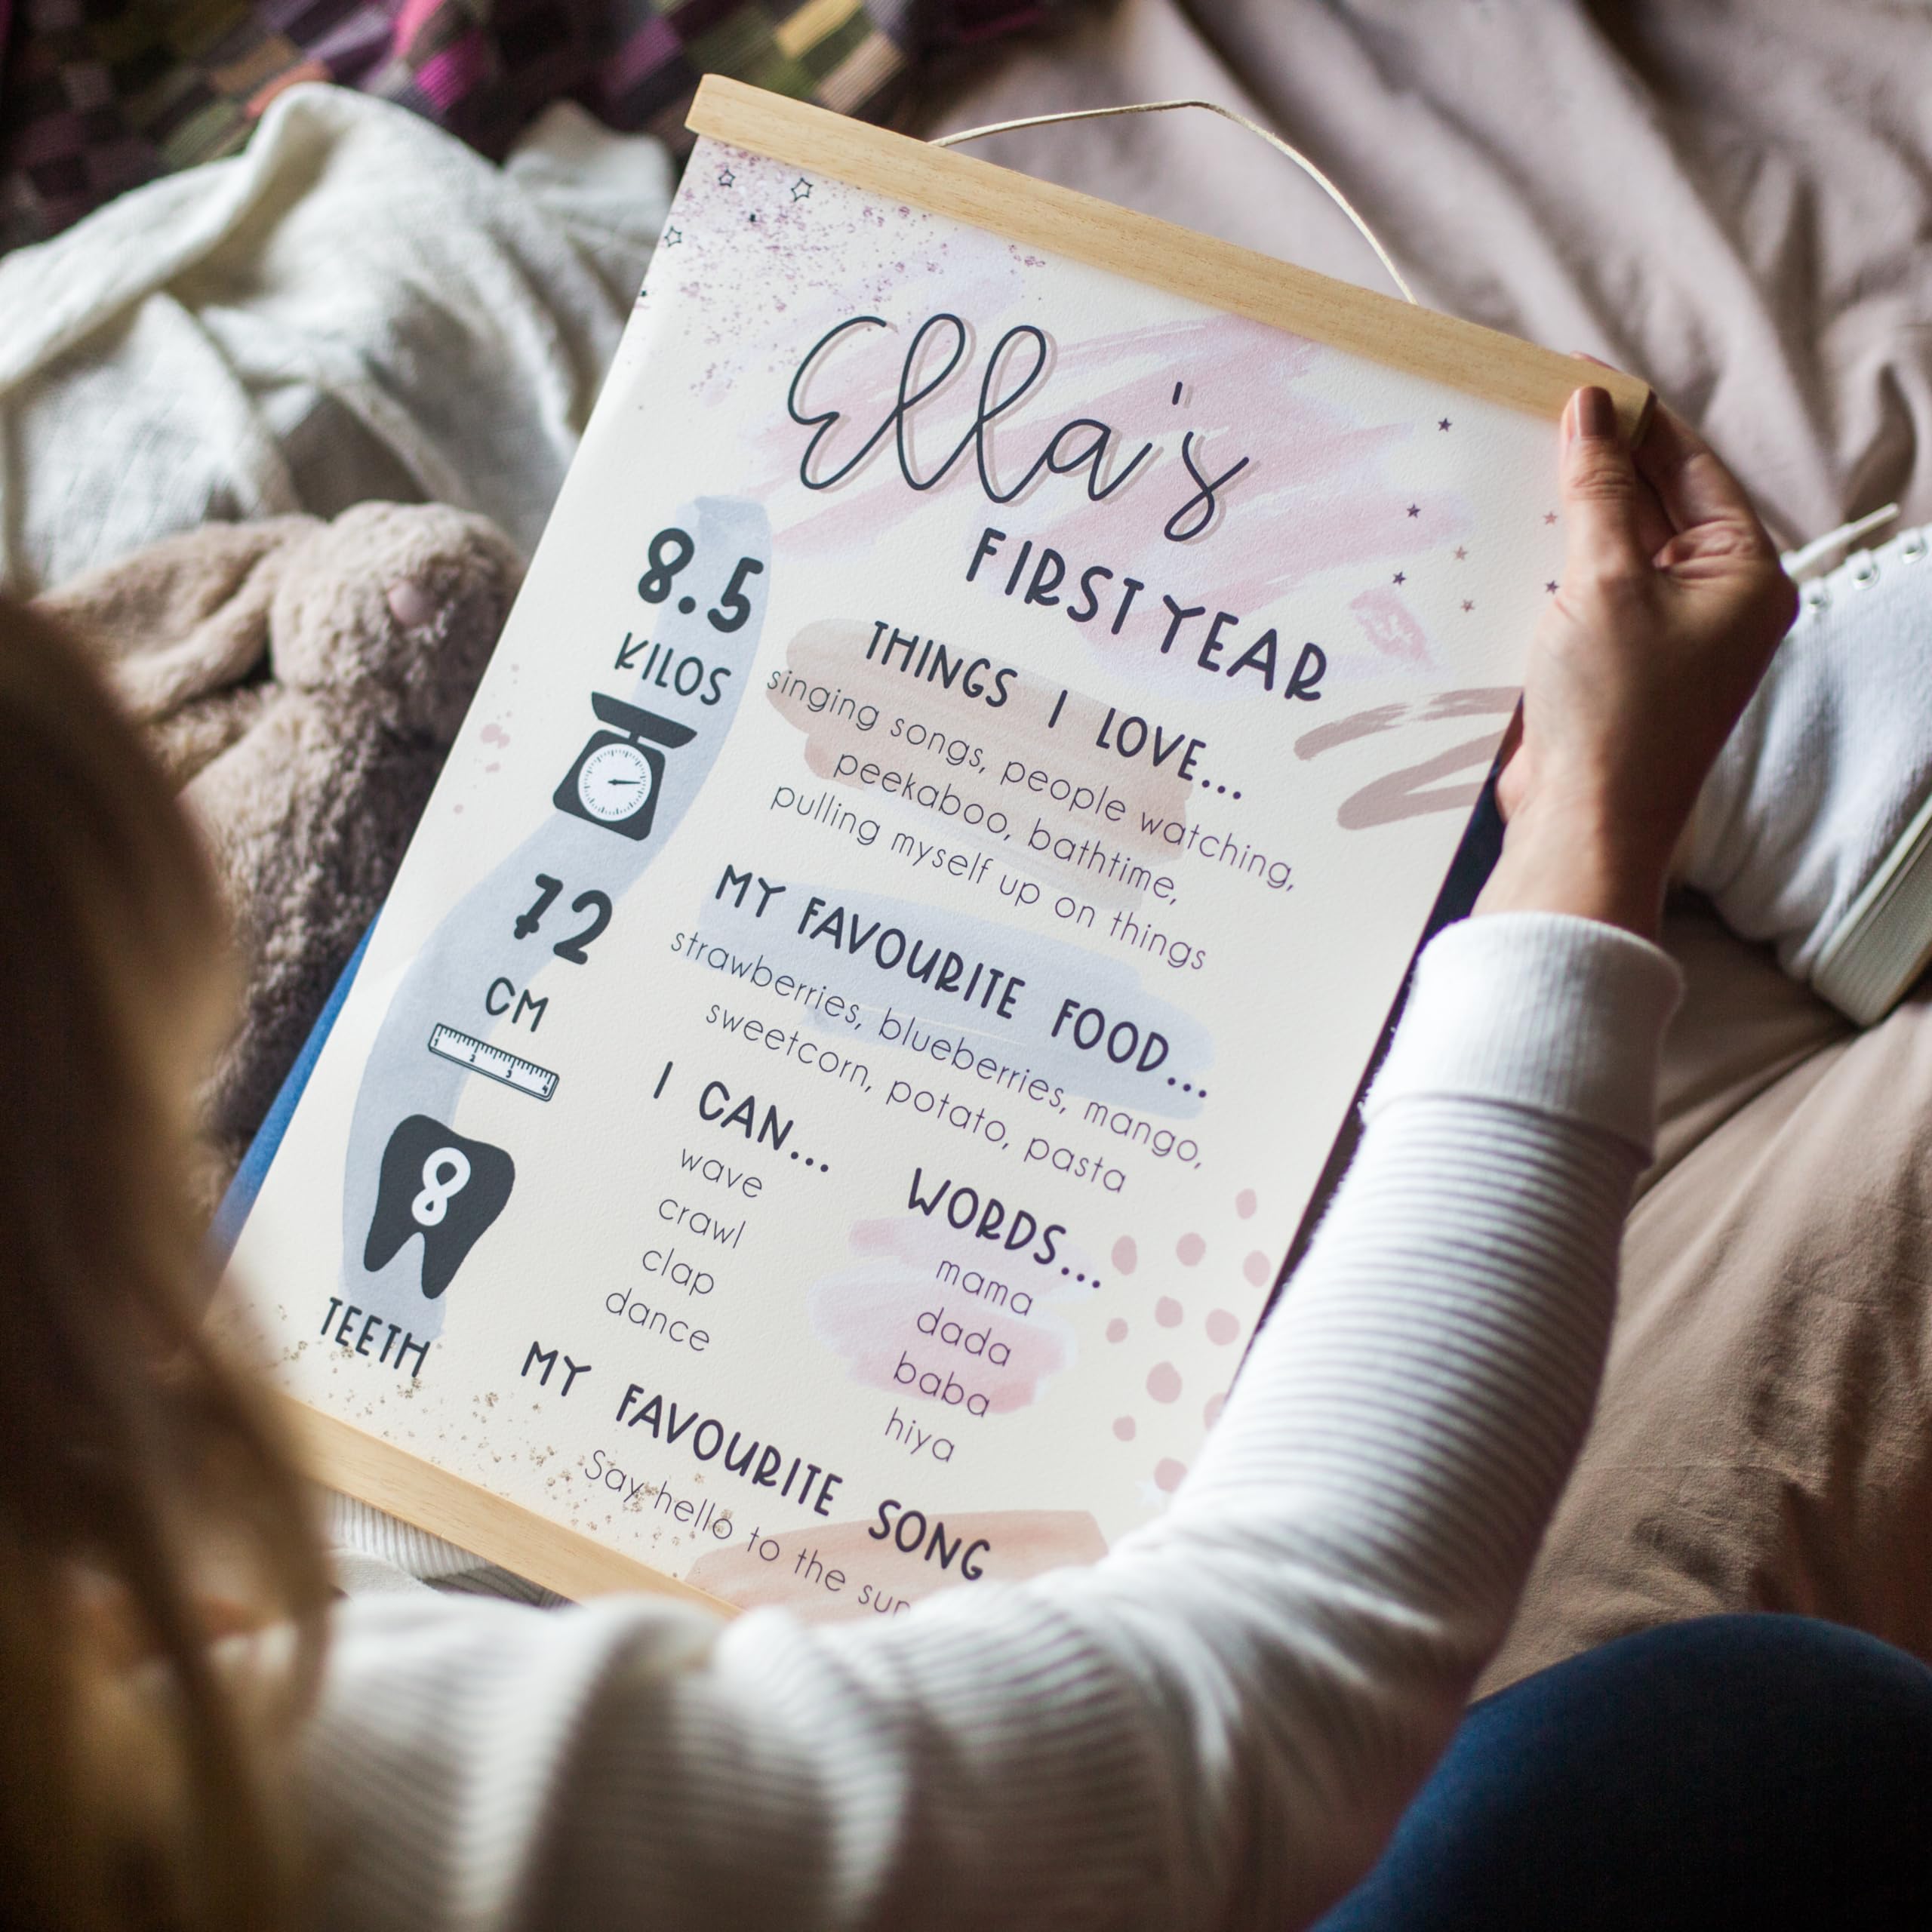 Ella's
FIRST YEAR
8.5
KILOS
72
CM
8
TEETH
THINGS I LOVE...
singing songs, people watching,
peekaboo, bathtime,
pulling myself up on things
MY FAVOURITE FOOD...
strawberries, blueberries, mango,
sweetcorn, potato, pasta
I CAN...
wave
crawl
clap
dance
WORDS...
mama
dada
baba
hiya
MY FAVOURITE SONG
Say hello to the